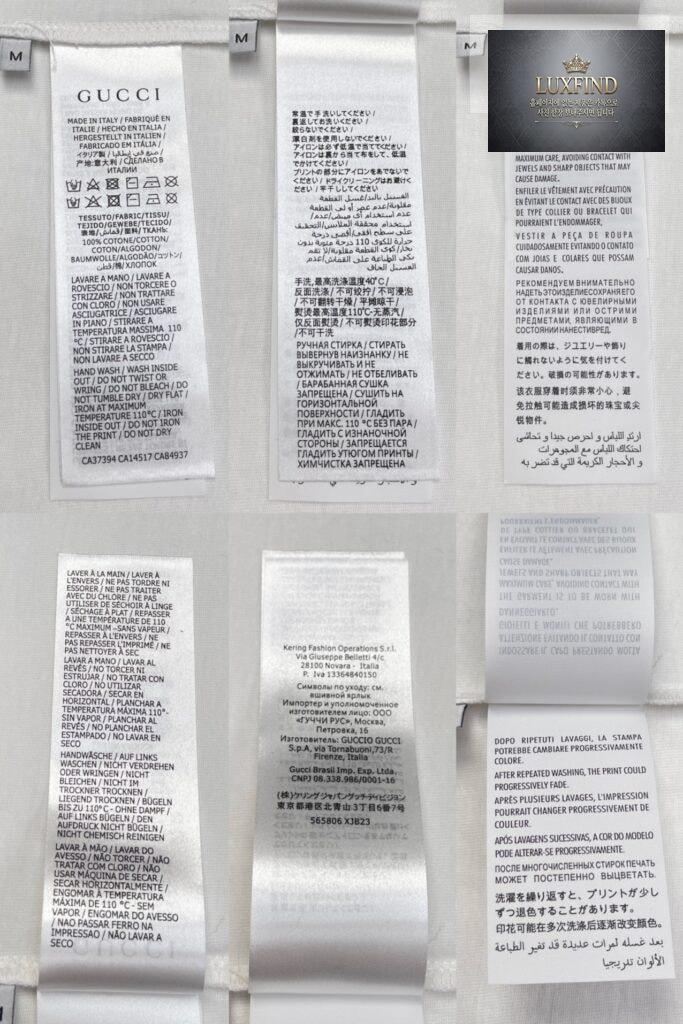 M
GUCCI
MADE IN ITALY / FABRIQUÉ EN
ITALIE / HECHO EN ITALIA /
HERGESTELLT IN ITALIEN /
FABRICADO EM ITÁLIA /
イタリア製 / صنع في إيطاليا /
产地:意大利 / СДЕЛАНО В
ИТАЛИИ
TESSUTO/FABRIC/TISSU/
TEJIDO/GEWEBE/TECIDO/
表地/قماش/面料/ТКАНЬ:
100% COTONE/COTTON/
COTON/ALGODON/
BAUMWOLLE/ALGODÃO/コットン/
قطن/棉/ХЛОПОК
LAVARE A MANO / LAVARE A
ROVESCIO / NON TORCERE O
STRIZZARE / NON TRATTARE
CON CLORO / NON USARE
ASCIUGATRICE / ASCIUGARE
IN PIANO / STIRARE A
TEMPERATURA MASSIMA 110
°C / STIRARE A ROVESCIO /
NON STIRARE LA STAMPA /
NON LAVARE A SECCO
HAND WASH / WASH INSIDE
OUT / DO NOT TWIST OR
WRING / DO NOT BLEACH / DO
NOT TUMBLE DRY / DRY FLAT /
IRON AT MAXIMUM
TEMPERATURE 110°C / IRON
INSIDE OUT / DO NOT IRON
THE PRINT / DO NOT DRY
CLEAN
CA37394 CA14517 CA84937
M
常温で手洗いしてください /
裏返してお洗いください /
絞らないでください /
漂白剤を使用しないでください /
アイロンは必ず低温で当ててください /
アイロンは裏から当て布をして、低温
でかけてください /
プリントの部分にアイロンをあてないで
ください / ドライクリーニングはお避けく
ださい / 平干ししてください
الغسيل باليد/الغسيل بالقطعة
مقلوبة/عدم عصر أو لي القطعة
/عدم استخدام أي مبيض/عدم
استخدام مجففة الملابس/التجفيف
على سطح أفقي/أقصى درجة
حرارة للكوى 110 درجة مئوية بدون
بخار/كوى القطعة مقلوبة/لا تقم
بكي الطباعة على القماش/عدم
الغسيل الجاف
手洗,最高洗涤温度40°C/
反面洗涤 / 不可绞拧 / 不可浸泡
/ 不可翻转干燥 / 平摊晾干 /
熨烫最高温度110°C-无蒸汽/
仅反面熨烫 / 不可熨烫印花部分
/不可干洗
РУЧНАЯ СТИРКА / СТИРАТЬ
ВЫВЕРНУВ НАИЗНАНКУ / НЕ
ВЫКРУЧИВАТЬ И НЕ
ОТЖИМАТЬ / НЕ ОТБЕЛИВАТЬ
/ БАРАБАННАЯ СУШКА
ЗАПРЕЩЕНА / СУШИТЬ НА
ГОРИЗОНТАЛЬНОЙ
ПОВЕРХНОСТИ / ГЛАДИТЬ
ПРИ МАКС. 110 °C БЕЗ ПАРА /
ГЛАДИТЬ С ИЗНАНОЧНОЙ
СТОРОНЫ / ЗАПРЕЩАЕТСЯ
ГЛАДИТЬ УТЮГОМ ПРИНТЫ /
ХИМЧИСТКА ЗАПРЕЩЕНА
M
LUXFIND
홈페이지에 없는 제품은 카톡으로
사진 한장 보내주시면 됩니다
MAXIMUM CARE, AVOIDING CONTACT WITH
JEWELS AND SHARP OBJECTS THAT MAY
CAUSE DAMAGE.
ENFILER LE VÊTEMENT AVEC PRÉCAUTION
EN ÉVITANT LE CONTACT AVEC DES BIJOUX
DE TYPE COLLIER OU BRACELET QUI
POURRAIENT L'ENDOMMAGER.
VESTIR A PEÇA DE ROUPA
CUIDADOSAMENTE EVITANDO O CONTATO
COM JOIAS E COLARES QUE POSSAM
CAUSAR DANOS.
РЕКОМЕНДУЕМ ВНИМАТЕЛЬНО
НАДЕТЬ ЭТО ИЗДЕЛИЕ СОХРАНЯЯ ЕГО
ОТ КОНТАКТА С ЮВЕЛИРНЫМИ
ИЗДЕЛИЯМИ ИЛИ ОСТРИМИ
ПРЕДМЕТАМИ, ЯВЛЯЮЩИМИ В
СОСТОЯНИИ НАНЕСТИ ВРЕД.
着用の際は、ジユエリーや飾り
に触れないように気を付けてく
ださい。破損の可能性があります。
该衣服穿着时须非常小心，避
免拉触可能造成损坏的珠宝或尖
锐物件。
ارتدِ اللباس و احرص جيدا و تحاشى
احتكاك اللباس مع المجوهرات
و الأحجار الكريمة التي قد تضر به
LAVER À LA MAIN / LAVER À
L'ENVERS / NE PAS TORDRE NI
ESSORER / NE PAS TRAITER
AVEC DU CHLORE / NE PAS
UTILISER DE SÉCHOIR À LINGE
/ SÉCHAGE À PLAT / REPASSER
A UNE TEMPÉRATURE DE 110
°C MAXIMUM –SANS VAPEUR /
REPASSER À L'ENVERS / NE
PAS REPASSER L'IMPRIMÉ / NE
PAS NETTOYER À SEC
LAVAR A MANO / LAVAR AL
REVÉS / NO TORCER NI
ESTRUJAR / NO TRATAR CON
CLORO / NO UTILIZAR
SECADORA / SECAR EN
HORIZONTAL / PLANCHAR A
TEMPERATURA MÁXIMA 110°-
SIN VAPOR / PLANCHAR AL
REVÉS / NO PLANCHAR EL
ESTAMPADO / NO LAVAR EN
SECO
HANDWÄSCHE / AUF LINKS
WASCHEN / NICHT VERDREHEN
ODER WRINGEN / NICHT
BLEICHEN / NICHT IM
TROCKNER TROCKNEN /
LIEGEND TROCKNEN / BÜGELN
BIS ZU 110°C - OHNE DAMPF /
AUF LINKS BÜGELN / DEN
AUFDRUCK NICHT BÜGELN /
NICHT CHEMISCH REINIGEN
LAVAR À MÃO / LAVAR DO
AVESSO / NÃO TORCER / NÃO
TRATAR COM CLORO / NÃO
USAR MÁQUINA DE SECAR /
SECAR HORIZONTALMENTE /
ENGOMAR À TEMPERATURA
MÁXIMA DE 110 °C - SEM
VAPOR / ENGOMAR DO AVESSO
/ NAO PASSAR FERRO NA
IMPRESSAO / NÃO LAVAR A
SECO
Kering Fashion Operations S.r.l.
Via Giuseppe Belletti 4/c
28100 Novara - Italia
P. Iva 13364840150
Символы по уходу: см.
вшивной ярлык
Импортер и уполномоченное
изготовителем лицо: ООО
«ГУЧЧИ РУС», Москва,
Петровка, 16
Изготовитель: GUCCIO GUCCI
S.p.A, via Tornabuoni,73/R
Firenze, Italia
Gucci Brasil Imp. Exp. Ltda.
CNPJ 08.338.986/0001-16
(株)ケリングジャパングッチディビジョン
東京都港区北青山3丁目6番7号
565806 XJB23
INDOSSARE IL CAPO PRESTANDO MOLTA
ATTENZIONE EVITANDO IL CONTATTO CON
GIOIELLI E MONILI CHE POTREBBERO
DANNEGGIARLO.
THE GARMENT IS TO BE WORN WITH
MAXIMUM CARE, AVOIDING CONTACT WITH
JEWELS AND SHARP OBJECTS THAT MAY
CAUSE DAMAGE.
ENFILER LE VÊTEMENT AVEC PRÉCAUTION
EN ÉVITANT LE CONTACT AVEC DES BIJOUX
DE TYPE COLLIER OU BRACELET QUI
POURRAIENT L'ENDOMMAGER.
DOPO RIPETUTI LAVAGGI, LA STAMPA
POTREBBE CAMBIARE PROGRESSIVAMENTE
COLORE.
AFTER REPEATED WASHING, THE PRINT COULD
PROGRESSIVELY FADE.
APRÈS PLUSIEURS LAVAGES, L'IMPRESSION
POURRAIT CHANGER PROGRESSIVEMENT DE
COULEUR.
APÓS LAVAGENS SUCESSIVAS, A COR DO MODELO
PODE ALTERAR-SE PROGRESSIVAMENTE.
ПОСЛЕ МНОГОЧИСЛЕННЫХ СТИРОК ПЕЧАТЬ
МОЖЕТ ПОСТЕПЕННО ВЫЦВЕТАТЬ.
洗濯を繰り返すと、プリントが少し
ずつ退色することがあります。
印花可能在多次洗涤后逐渐改变颜色。
بعد غسله لمرات عديدة قد تغير الطباعة
الألوان تدريجيا